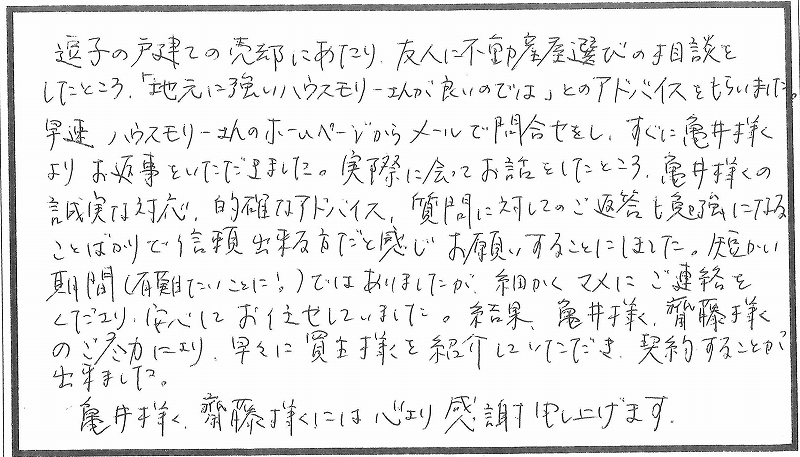 逗子の戸建ての売却にあたり、友人に不動産屋選びの相談を
したところ、「地元に強いハウスモリーさんが良いのでは」とのアドバイスをもらいました。
早速 ハウスモリーさんのホームページからメールで問合せをし、すぐに亀井様
より お返事をいただきました。実際に会ってお話をしたところ、亀井様の
誠実な対応、的確なアドバイス、質問に対してのご返答も勉強になる
ことばかりで信頼出来る方だと感じ お願いすることにしました。短かい
期間(有難たいことに!)ではありましたが、細かくマメにご連絡を
くださり、安心して お任せしていました。結果、亀井様、齋藤様
のご尽力により、早々に買主様を紹介していただき、契約することが
出来ました。
亀井様、齋藤様には心より感謝申し上げます.